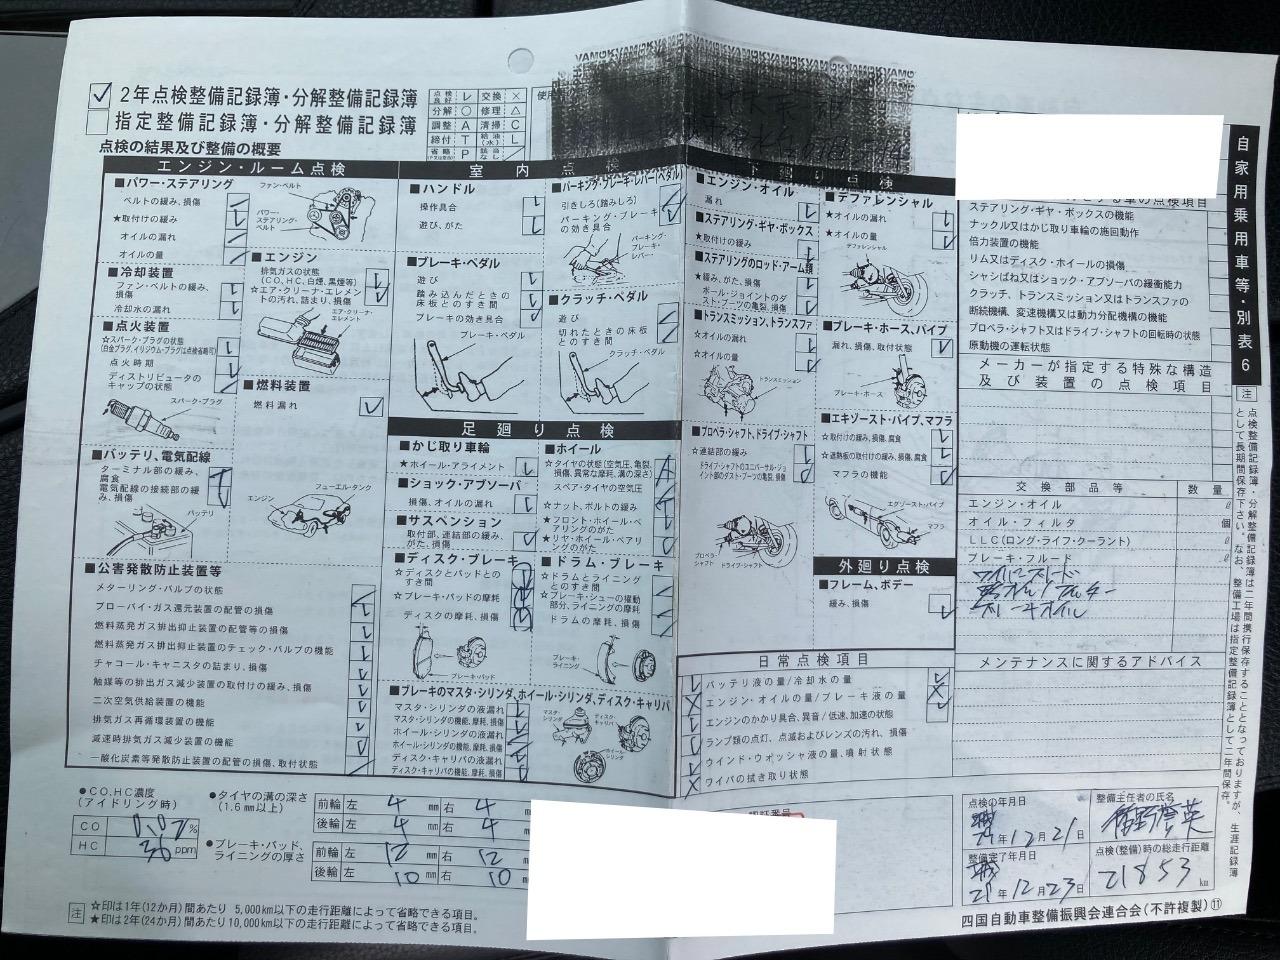 2年点検整備記録簿・分解整備記録簿
指定整備記録簿・分解整備記録簿
点検の結果及び整備の概要
点検良好 レ 交換 ×
分解 ○ 修理 △
調整 A 清掃 C
締付 T 給油(水) L
省略 P 該当なし /
エンジン・ルーム点検
■パワー・ステアリング
ベルトの緩み、損傷
★取付けの緩み
オイルの漏れ
オイルの量
ファン・ベルト
パワー・ステアリング・ベルト
■冷却装置
ファン・ベルトの緩み、損傷
冷却水の漏れ
■点火装置
☆スパーク・プラグの状態
(白金プラグ、イリジウム・プラグは点検省略可)
点火時期
ディストリビュータのキャップの状態
スパーク・プラグ
■バッテリ、電気配線
ターミナル部の緩み、腐食
電気配線の接続部の緩み、損傷
バッテリ
■エンジン
排気ガスの状態
(CO、HC、白煙、黒煙等)
☆エア・クリーナ・エレメントの汚れ、詰まり、損傷
エア・クリーナ・エレメント
■燃料装置
燃料漏れ
エンジン
フューエル・タンク
■公害発散防止装置等
メターリング・バルブの状態
ブローバイ・ガス還元装置の配管の損傷
燃料蒸発ガス排出抑止装置の配管等の損傷
燃料蒸発ガス排出抑止装置のチェック・バルブの機能
チャコール・キャニスタの詰まり、損傷
触媒等の排出ガス減少装置の取付けの緩み、損傷
二次空気供給装置の機能
排気ガス再循環装置の機能
減速時排気ガス減少装置の機能
一酸化炭素等発散防止装置の配管の損傷、取付状態
室内点検
■ハンドル
操作具合
遊び、がた
■ブレーキ・ペダル
遊び
踏み込んだときの床板とのすき間
ブレーキの効き具合
ブレーキ・ペダル
■パーキング・ブレーキ・レバー(ペダル)
引きしろ(踏みしろ)
パーキング・ブレーキの効き具合
パーキング・ブレーキ・レバー
■クラッチ・ペダル
遊び
切れたときの床板とのすき間
クラッチ・ペダル
足廻り点検
■かじ取り車輪
★ホイール・アライメント
■ショック・アブソーバ
損傷、オイルの漏れ
■サスペンション
取付部、連結部の緩み、がた、損傷
■ディスク・ブレーキ
☆ディスクとパッドとのすき間
☆ブレーキ・パッドの摩耗
ディスクの摩耗、損傷
ブレーキ・パッド
■ホイール
☆タイヤの状態(空気圧、亀裂、損傷、異常な摩耗、溝の深さ)
スペア・タイヤの空気圧
☆ナット、ボルトの緩み
★フロント・ホイール・ベアリングのがた
★リヤ・ホイール・ベアリングのがた
■ドラム・ブレーキ
☆ドラムとライニングとのすき間
☆ブレーキ・シューの摺動部分、ライニングの摩耗
ドラムの摩耗、損傷
ブレーキ・ライニング
■ブレーキのマスタ・シリンダ、ホイール・シリンダ、ディスク・キャリパ
マスタ・シリンダの液漏れ
マスタ・シリンダの機能、摩耗、損傷
ホイール・シリンダの液漏れ
ホイール・シリンダの機能、摩耗、損傷
ディスク・キャリパの液漏れ
ディスク・キャリパの機能、摩耗、損傷
マスタ・シリンダ
ディスク・キャリパ
ホイール・シリンダ
■エンジン・オイル
漏れ
■ステアリング・ギヤ・ボックス
★取付けの緩み
■ステアリングのロッド・アーム類
★緩み、がた、損傷
ボール・ジョイントのダスト・ブーツの亀裂、損傷
■トランスミッション、トランスファ
☆オイルの漏れ
☆オイルの量
トランスミッション
■プロペラ・シャフト、ドライブ・シャフト
☆連結部の緩み
ドライブ・シャフトのユニバーサル・ジョイント部のダスト・ブーツの亀裂、損傷
プロペラ・シャフト
ドライブ・シャフト
■デファレンシャル
★オイルの漏れ
★オイルの量
デファレンシャル
■ブレーキ・ホース、パイプ
漏れ、損傷、取付状態
ブレーキ・ホース
■エキゾースト・パイプ、マフラ
☆取付けの緩み、損傷、腐食
☆遮熱板の取付けの緩み、損傷、腐食
マフラの機能
エグゾースト・パイプ
マフラ
外廻り点検
■フレーム、ボデー
緩み、損傷
日常点検項目
バッテリ液の量/冷却水の量
エンジン・オイルの量/ブレーキ液の量
エンジンのかかり具合、異音/低速、加速の状態
ランプ類の点灯、点滅およびレンズの汚れ、損傷
ウインド・ウォッシャ液の量、噴射状態
ワイパの拭き取り状態
ステアリング・ギヤ・ボックスの機能
ナックル又はかじ取り車輪の施回動作
倍力装置の機能
リム又はディスク・ホイールの損傷
シャシばね又はショック・アブソーバの緩衝能力
クラッチ、トランスミッション又はトランスファの
断続機構、変速機構又は動力分配機構の機能
プロペラ・シャフト又はドライブ・シャフトの回転時の状態
原動機の運転状態
メーカーが指定する特殊な構造
及び装置の点検項目
交換部品等 数量
エンジン・オイル ℓ
オイル・フィルタ 個
LLC(ロング・ライフ・クーラント) ℓ
ブレーキ・フルード ℓ
ブレーキオイル
メンテナンスに関するアドバイス
自家用乗用車等・別表6
注 点検整備記録簿・分解整備記録簿は二年間携行保存することとなっておりますが、生涯記録簿
として長期間保存下さい。なお、整備工場は指定整備記録簿として二年間保存。
●CO、HC濃度
(アイドリング時)
CO 0.07 %
HC 36 ppm
●タイヤの溝の深さ
(1.6㎜以上)
前輪 左 4 ㎜ 右 4
後輪 左 4 ㎜ 右 4
●ブレーキ・パッド、ライニングの厚さ
前輪 左 12 ㎜ 右 12
後輪 左 10 ㎜ 右 10
注 ☆印は1年(12か月)間あたり 5,000km以下の走行距離によって省略できる項目。
★印は2年(24か月)間あたり10,000km以下の走行距離によって省略できる項目。
点検の年月日
年12月21日
整備完了年月日
年12月23日
整備主任者の氏名
点検(整備)時の総走行距離
21853 km
四国自動車整備振興会連合会(不許複製)⑪